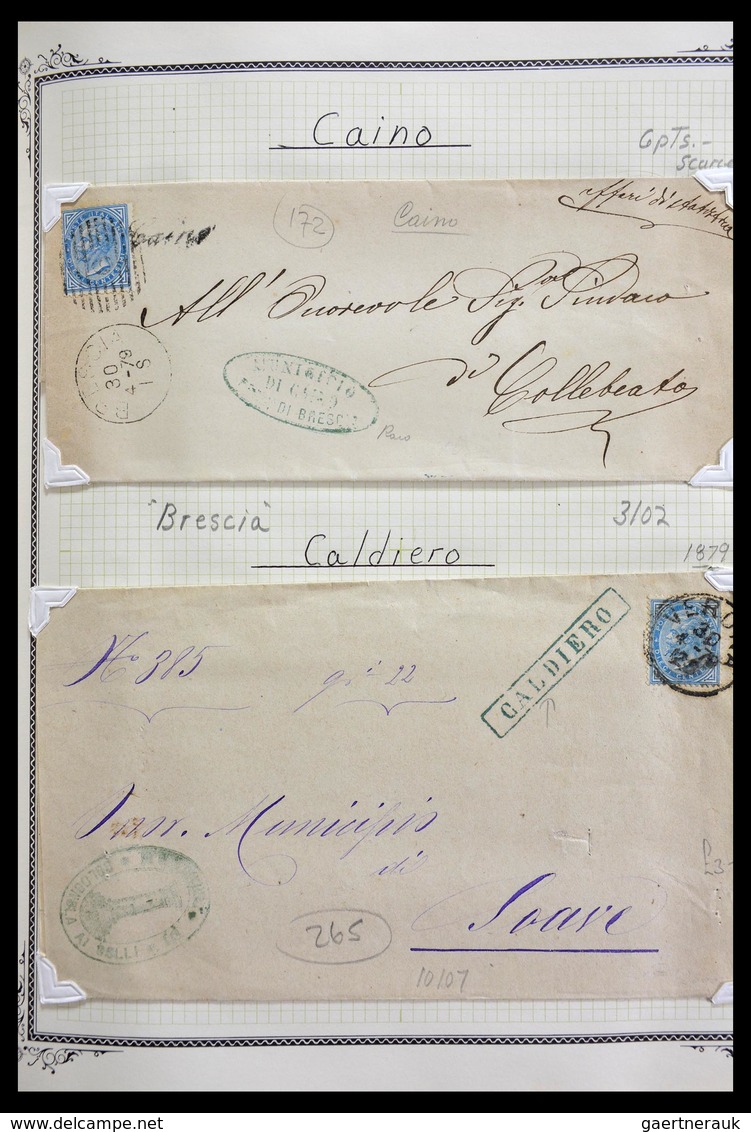 Caino
6pTs.-
scarce
172
Caino
Caino
affari di statistica
All' Onorevole Sig. Sindaco
di
Collebeato
BRESCIA
30
4-79
1 S
MUNICIPIO
DI CAINO
PROV. DI BRESCIA
Raro
"Brescia"
3/02
Caldiero
1879
No 385
22
CALDIERO
VERONA
30
Municipio
di
Soave
265
10/07
delcampe.net
gaertnerauk